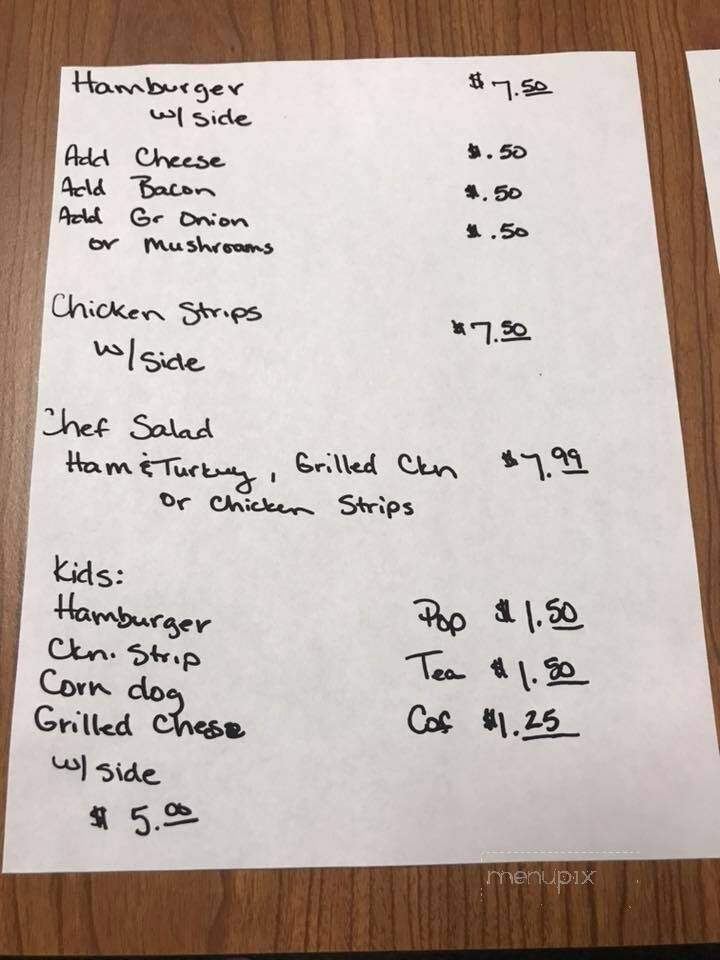 Hamburger $7.50
w/ side
Add Cheese $.50
Add Bacon $.50
Add Gr Onion
or Mushrooms $.50
Chicken Strips
w/side $7.50
Chef Salad
Ham & Turkey, Grilled Ckn $7.99
or Chicken Strips
Kids:
Hamburger Pop $1.50
Ckn. Strip Tea $1.50
Corn dog
Grilled Cheese Cof $1.25
w/ side
$5.00
menupix